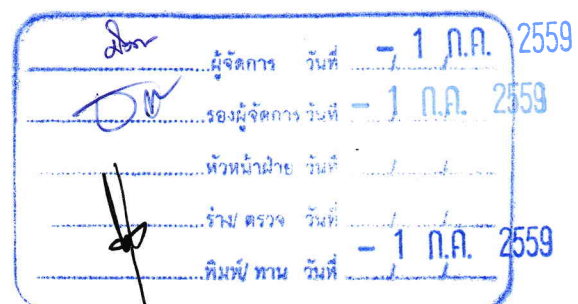 ผู้จัดการ วันที่ - 1 ก.ค. 2559
รองผู้จัดการ วันที่ - 1 ก.ค. 2559
หัวหน้าฝ่าย วันที่ ...../...../.....
ร่าง/ ตรวจ วันที่ ...../...../.....
พิมพ์/ ทาน วันที่ - 1 ก.ค. 2559